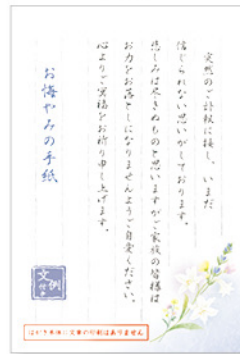 突然のご訃報に接し、いまだ
信じられない思いがしております。
悲しみは尽きぬものと思いますがご家族の皆様は
お力をお落としになりませんようご自愛ください。
心よりご冥福をお祈り申し上げます。
お悔やみの手紙
文例
付き
はがき本体に文章の印刷はありません